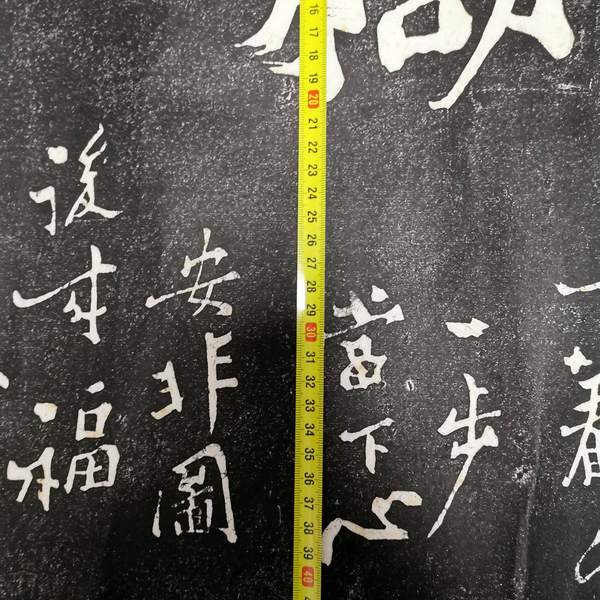 一著
一步
當下心
安非圖
後來福
16
17
18
19
20
21
22
23
24
25
26
27
28
29
30
31
32
33
34
35
36
37
38
39
40